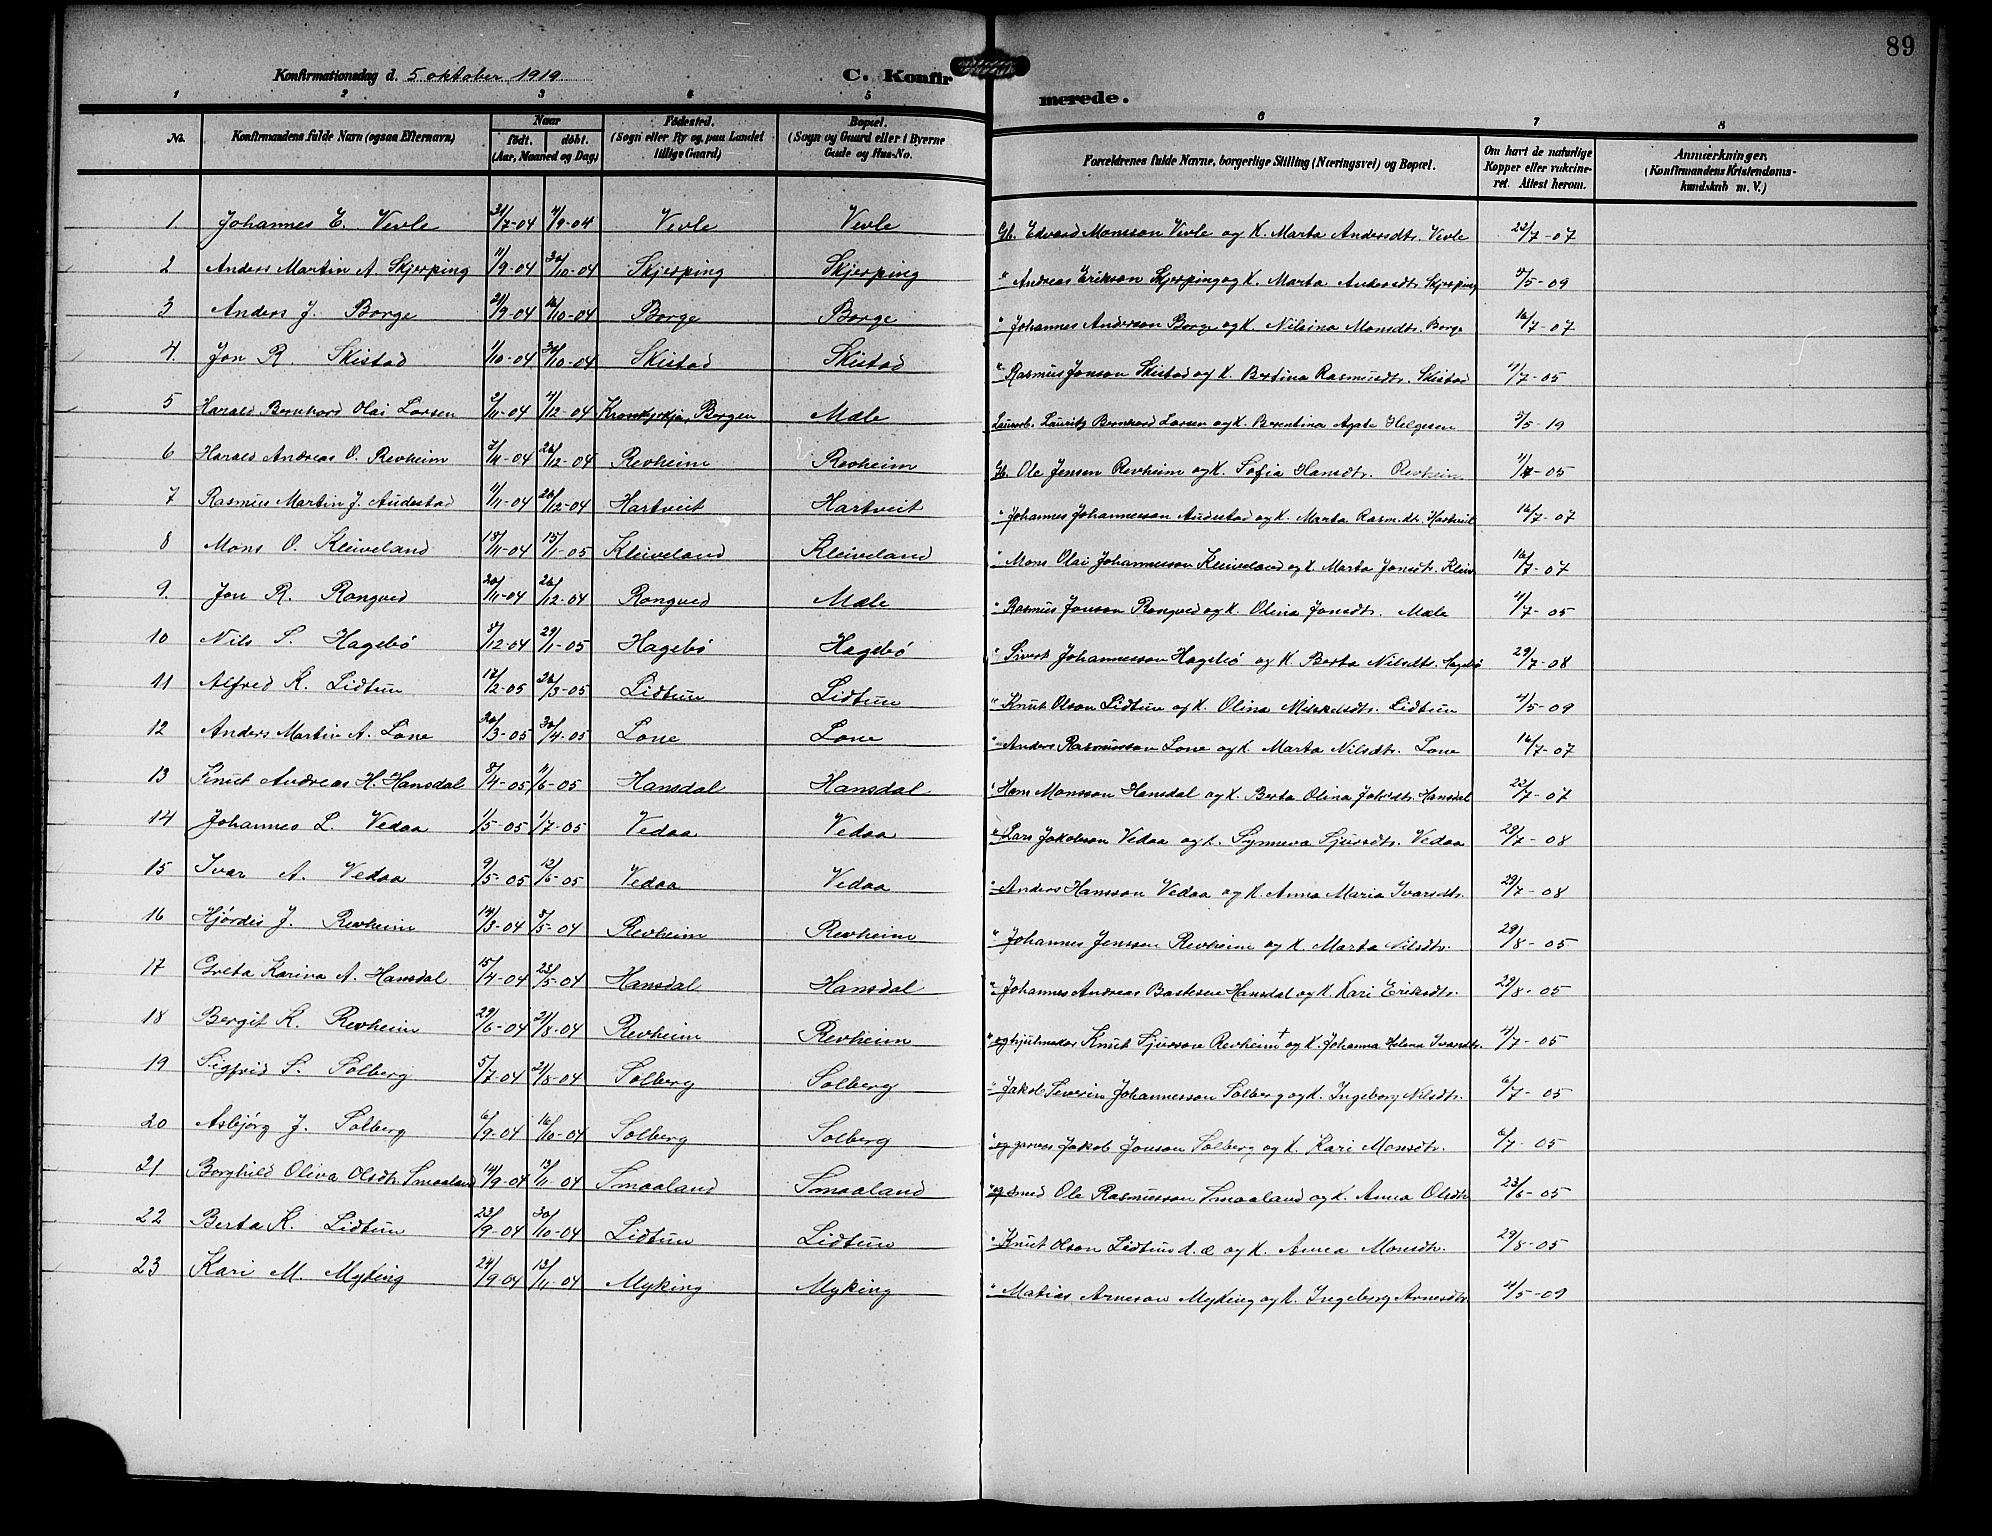 89
Konfirmationsdag d. 5 oktober 1919
C. Konfirmerede.
1 2 3 4 5 6 7 8
No. | Konfirmandens fulde Navn (ogsaa Efternavn) | Naar født. døbt. (Aar, Maaned og Dag) | Fødested. (Sogn eller By og, paa Landet tillige Gaard) | Bopæl. (Sogn og Gaard eller i Byerne Gade og Hus-No. | Forældrenes fulde Navne, borgerlige Stilling (Næringsvei) og Bopæl. | Om havt de naturlige Kopper eller vakcineret. Attest herom. | Anmærkninger. (Konfirmandens Kristendomskundskab m. V.)
1 Johannes E. Vevle 31/7-04 4/9-04 Vevle Vevle Gb. Edvard Monsson Vevle og K. Marta Andersdtr. Vevle 22/7-07
2 Anders Martin A. Skjerping 11/9-04 30/10-04 Skjerping Skjerping " Andreas Erikson Skjerping og K. Marta Andersdtr. Skjerping 5/5-09
3 Anders J. Borge 21/9-04 16/10-04 Borge Borge " Johannes Anderson Borge og K. Nilsina Monsdtr. Borge 16/7-07
4. Jon R. Skistad 1/10-04 30/10-04 Skistad Skistad " Rasmus Jonson Skistad og K. Bertina Rasmusdtr. Skistad 4/7-05
5 Harald Bernhard Olai Larsen 2/11-04 4/12-04 Bergen Mæle Lauritz Bernhard Larsen og K. Berentina Agate Helgesen 3/5-19
6 Harald Andreas O. Revheim 7/11-04 26/12-04 Revheim Revheim Gb. Ole Jensen Revheim og K. Sofia Hansdtr. Revheim 4/7-05
7 Rasmus Martin J. Audestad 11/11-04 26/12-04 Hartveit Hartveit " Johannes Johannesson Audestad og K. Marta Rasm.dtr. Hartveit 16/7-07
8 Mons O. Kleiveland 15/11-04 15/1-05 Kleiveland Kleiveland " Mons Olai Johannesson Kleiveland og K. Marta Jonsdtr. Kleiv. 16/7-07
9. Jon R. Rongved 20/11-04 26/12-04 Rongved Mæle " Rasmus Jonson Rongved og K. Olina Jonsdtr. Mæle 4/7-05
10 Nils S. Hagebø 8/12-04 29/1-05 Hagebø Hagebø " Sivert Johannesson Hagebø og K. Berta Nilsdtr. Hagebø 29/7-08
11 Alfred K. Lidtun 17/2-05 26/3-05 Lidtun Lidtun " Knut Olson Lidtun og K. Olina Mikkelsdtr. Lidtun 4/5-09
12 Anders Martin A. Lone 20/3-05 30/4-05 Lone Lone " Anders Rasmusson Lone og K. Marta Nilsdtr. Lone 16/7-07
13 Knut Andreas H. Hansdal 8/4-05 11/6-05 Hansdal Hansdal " Hans Monsson Hansdal og K. Berta Olina Jak.dtr. Hansdal 22/7-07
14 Johannes L. Vedaa 1/5-05 1/7-05 Vedaa Vedaa " Lars Jakobson Vedaa og K. Synneva Sjursdtr. Vedaa 29/7-08
15 Ivar A. Vedaa 9/5-05 12/6-05 Vedaa Vedaa " Anders Hansson Vedaa og K. Anna Maria Ivarsdtr. 29/7-08
16 Hjørdis J. Revheim 14/3-04 8/5-04 Revheim Revheim " Johannes Jensson Revheim og K. Marta Nilsdtr. 29/8-05
17 Greta Karina A. Hansdal 15/4-04 23/5-04 Hansdal Hansdal " Johannes Andreas Bastesen Hansdal og K. Kari Eriksdtr. 29/8-05
18 Bergit K. Revheim 29/6-04 21/8-04 Revheim Revheim " og hjulmaker Knut Sjursson Revheim † og K. Johanna Helena Ivarsdtr. 4/7-05
19 Sigfrid S. Solberg 5/7-04 21/8-04 Solberg Solberg " Jakob Severin Johannesson Solberg og K. Ingeborg Nilsdtr. 6/7-05
20 Asbjørg J. Solberg 6/9-04 16/10-04 Solberg Solberg " og garver Jakob Jonson Solberg og K. Kari Monsdtr. 6/7-05
21 Borghild Oliva Olsdtr. Smaaland 14/9-04 13/11-04 Smaaland Smaaland " og smed Ole Rasmusson Smaaland og K. Anna Olsdtr. 23/6-05
22 Berta K. Lidtun 23/9-04 30/10-04 Lidtun Lidtun " Knut Olson Lidtun d. æ og K. Anna Monsdtr. 29/8-05
23 Kari M. Myking 24/9-04 13/11-04 Myking Myking " Matias Arneson Myking og K. Ingeborg Arnesdtr. 4/5-09